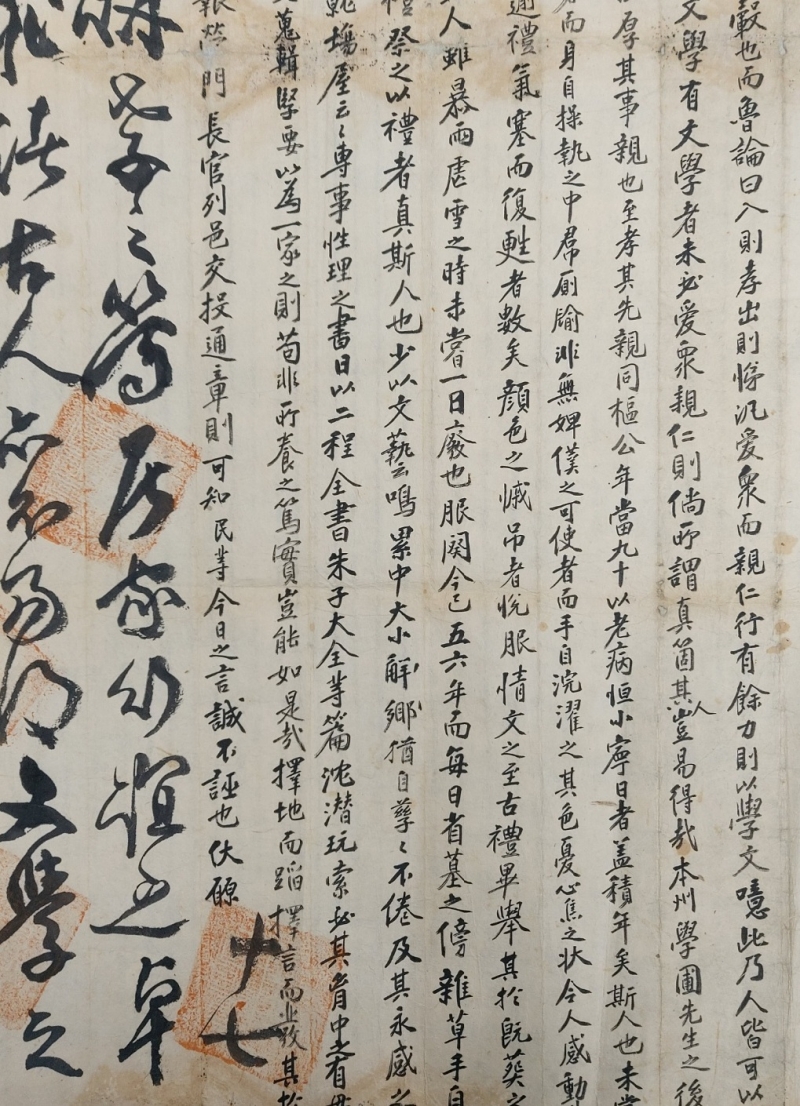 轂也而魯論曰入則孝出則悌汎愛衆而親仁行有餘力則以學文噫此乃人皆可以
文學有文學者未必愛衆親仁則倘所謂真箇其人豈易得哉本州學圃先生之後
厚其事親也至孝其先親同樞公年當九十以老病恒小寧日者盖積年矣斯人也未嘗
而身自操執之中帬厠牏非無婢僕之可使者而手自浣濯之其色憂心焦之状令人感動
通禮氣塞而復甦者數矣顔色之慽吊者悅服情文之至古禮畢舉其於旣葬之
人雖暴雨虐雪之時未嘗一日廢也服闋今已五六年而每日省墓之傍雜草手自
祭之以禮者真斯人也少以文藝鳴累中大小解鄕猶自孳〻不倦及其永感之
塲屋云〻專事性理之書日以二程全書朱子大全等篇沈潛玩索必其胷中之有
蒐輯堅要以爲一家之則苟非所養之篤實豈能如是哉擇地而蹈擇言而發其於
門長官列邑交投通章則可知民等今日之言誠不誣也伏願
十七
孝之篤居家行誼之卓
古人亦不易得文學之